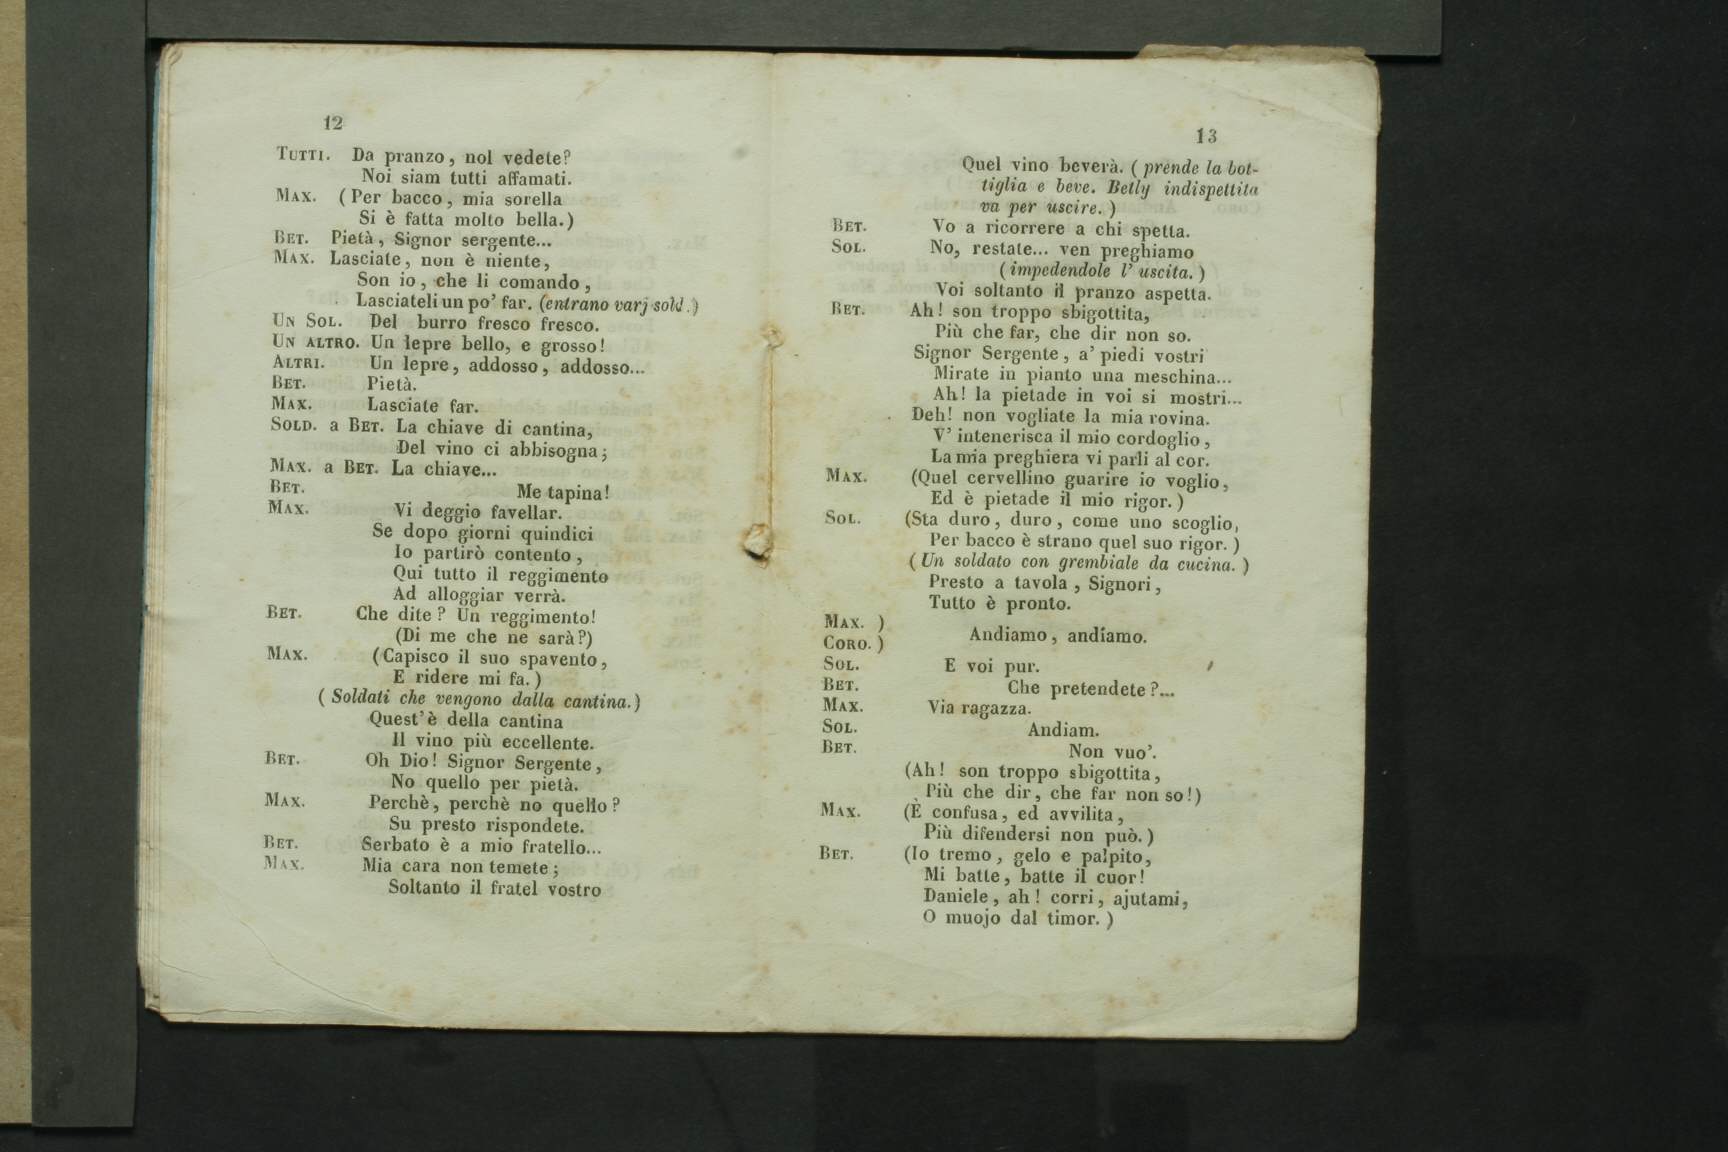 12
TUTTI. Da pranzo, nol vedete?
Noi siam tutti affamati.
MAX. (Per bacco, mia sorella
Si è fatta molto bella.)
BET. Pietà, Signor sergente...
MAX. Lasciate, non è niente,
Son io, che li comando,
Lasciateli un po' far. (entrano varj sold.)
UN SOL. Del burro fresco fresco.
UN ALTRO. Un lepre bello, e grosso!
ALTRI. Un lepre, addosso, addosso...
BET. Pietà.
MAX. Lasciate far.
SOLD. a BET. La chiave di cantina,
Del vino ci abbisogna;
MAX. a BET. La chiave...
BET. Me tapina!
MAX. Vi deggio favellar.
Se dopo giorni quindici
Io partirò contento,
Qui tutto il reggimento
Ad alloggiar verrà.
BET. Che dite? Un reggimento!
(Di me che ne sarà?)
MAX. (Capisco il suo spavento,
E ridere mi fa.)
(Soldati che vengono dalla cantina.)
Quest'è della cantina
Il vino più eccellente.
BET. Oh Dio! Signor Sergente,
No quello per pietà.
MAX. Perchè, perchè no quello?
Su presto rispondete.
BET. Serbato è a mio fratello...
MAX. Mia cara non temete;
Soltanto il fratel vostro
13
Quel vino beverà. (prende la bot-
tiglia e beve. Betly indispettita
va per uscire.)
BET. Vo a ricorrere a chi spetta.
SOL. No, restate... ven preghiamo
(impedendole l' uscita.)
Voi soltanto il pranzo aspetta.
BET. Ah! son troppo sbigottita,
Più che far, che dir non so.
Signor Sergente, a' piedi vostri
Mirate in pianto una meschina...
Ah! la pietade in voi si mostri...
Deh! non vogliate la mia rovina.
V' intenerisca il mio cordoglio,
La mia preghiera vi parli al cor.
MAX. (Quel cervellino guarire io voglio,
Ed è pietade il mio rigor.)
SOL. (Sta duro, duro, come uno scoglio,
Per bacco è strano quel suo rigor.)
(Un soldato con grembiale da cucina.)
Presto a tavola, Signori,
Tutto è pronto.
MAX. )
CORO. ) Andiamo, andiamo.
SOL. E voi pur.
BET. Che pretendete?...
MAX. Via ragazza.
SOL. Andiam.
BET. Non vuo'.
(Ah! son troppo sbigottita,
Più che dir, che far non so!)
MAX. (È confusa, ed avvilita,
Più difendersi non può.)
BET. (Io tremo, gelo e palpito,
Mi batte, batte il cuor!
Daniele, ah! corri, ajutami,
O muojo dal timor.)